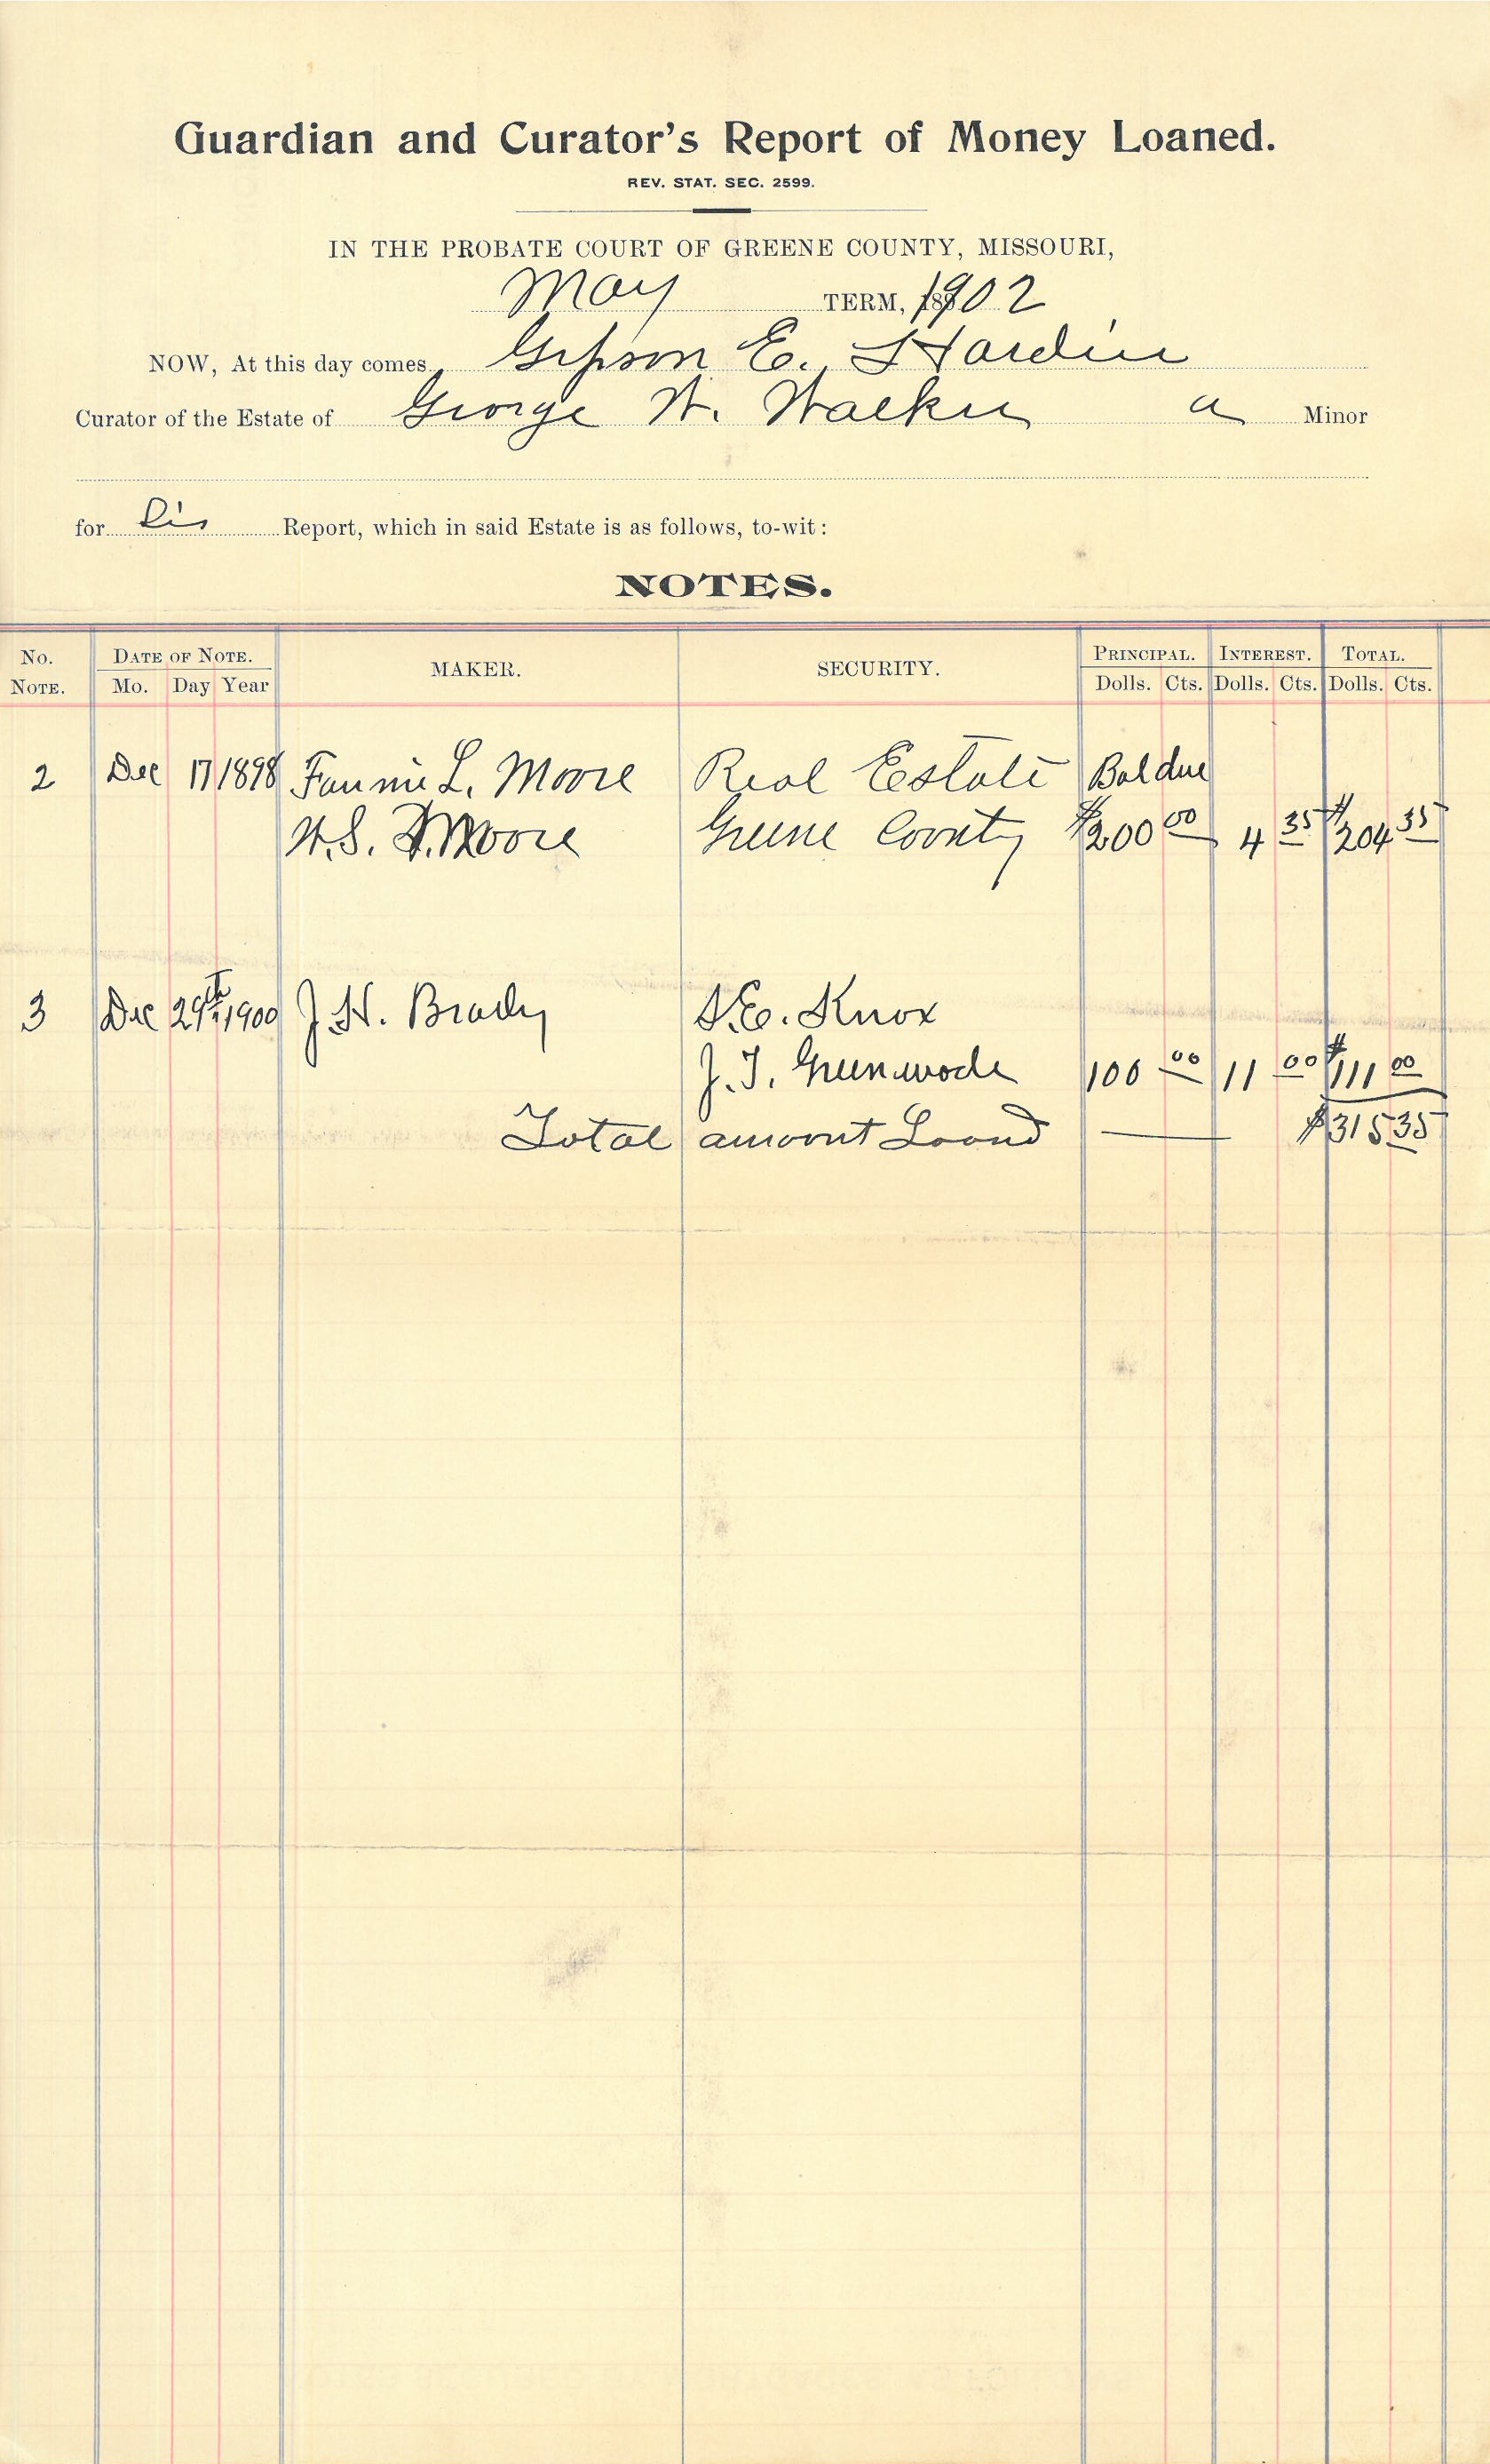 Guardian and Curator's Report of Money Loaned.
REV. STAT. SEC. 2599.
IN THE PROBATE COURT OF GREENE COUNTY, MISSOURI,
May TERM, 1902
NOW, At this day comes Gipson E. Hardin
Curator of the Estate of George W. Walker a Minor
for his Report, which in said Estate is as follows, to-wit:
NOTES.
No. NOTE. DATE OF NOTE. Mo. Day Year MAKER. SECURITY. PRINCIPAL. Dolls. Cts. INTEREST. Dolls. Cts. TOTAL. Dolls. Cts.
2 Dec 17 1898 Fannie L. Moore Real Eestate Bal due
W. S. Moore Greene County $200 00 4 35 $204 35
3 Dec 29th 1900 J. H. Brady S. E. Knox
J. T. Greenwode 100 00 11 00 $111 00
Total amount Loand $315 35